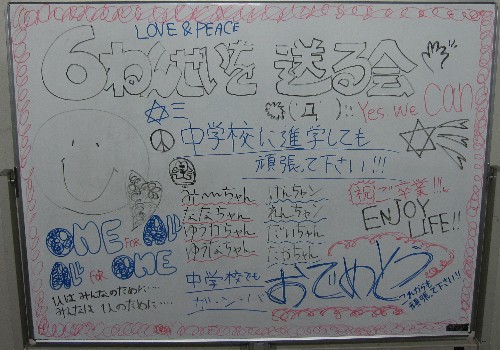 LOVE & PEACE
6ねんせいを 送る会
Yes we can
中学校に進学しても
頑張って下さい!!!
祝ご卒業!!!
ENJOY
LIFE!!
みーちゃん けんちゃン
ななちゃん れんちゃん
ゆうかちゃん
ゆうなちゃん
ONE FOR ALL
ALL FOR ONE
1人はみんなのために....
みんなは1人のために....
中学校でも
ガンバ
おめでとう
これからも
頑張って下さい!!